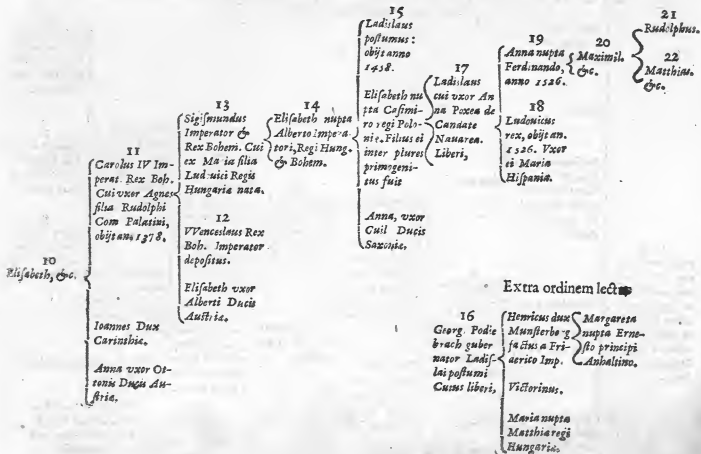 10
Eliſabeth, &c.
11
Carolus IV Im-
perat. Rex Boh.
Cui vxor Agnes
filia Rudolphi
Com Palatini,
obijt an. 1378.
Ioannes Dux
Carinthiæ.
Anna vxor Ot-
tonis Ducis Au-
ſtriæ.
13
Sigiſmundus
Imperator &
Rex Bohem. Cui
ex Maria filia
Luduuici Regis
Hungaria nata.
12
VVenceslaus Rex
Boh. Imperator
depoſitus.
Eliſabeth vxor
Alberti Ducis
Auſtriæ.
14
Eliſabeth nupta
Alberto Impera-
tori, Regi Hung.
& Bohem.
15
Ladislaus
poſtumus:
obijt anno
1458.
Eliſabeth nu
pta Caſimi-
ro regi Polo-
niæ. Filius ei
inter plures
primogeni-
tus fuit
Anna, vxor
Cuil Ducis
Saxoniæ.
17
Ladislaus
cui vxor An
na Poxea de
Candate
Nauarea.
Liberi,
19
Anna nupta
Ferdinando,
anno 1526.
18
Ludouicus
rex, obijt an.
1526. Vxor
ei Maria
Hiſpana.
20
Maximil.
&c.
21
Rudolphus.
22
Matthias.
&c.
Extra ordinem lectus
16
Georg. Podie
brach guber
nator Ladiſ-
lai poſtumi
Cuius liberi,
Henricus dux
Munſterberg
factus a Fri-
derico Imp.
Victorinus.
Maria nupta
Matthiæ regi
Hungariæ.
Margareta
nupta Erne-
ſto principi
Anhaltino.